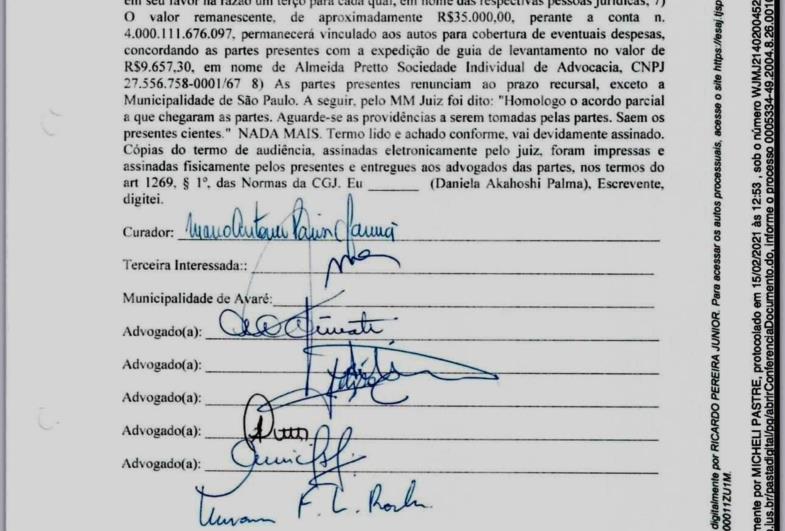 em seu favor na razão um terço para cada qual, em nome das respectivas pessoas jurídicas; 7)
O valor remanescente, de aproximadamente R$35.000,00, perante a conta n.
4.000.111.676.097, permanecerá vinculado aos autos para cobertura de eventuais despesas,
concordando as partes presentes com a expedição de guia de levantamento no valor de
R$9.657,30, em nome de Almeida Pretto Sociedade Individual de Advocacia, CNPJ
27.556.758-0001/67 8) As partes presentes renunciam ao prazo recursal, exceto a
Municipalidade de São Paulo. A seguir, pelo MM Juiz foi dito: "Homologo o acordo parcial
a que chegaram as partes. Aguarde-se as providências a serem tomadas pelas partes. Saem os
presentes cientes." NADA MAIS. Termo lido e achado conforme, vai devidamente assinado.
Cópias do termo de audiência, assinadas eletronicamente pelo juiz, foram impressas e
assinadas fisicamente pelos presentes e entregues aos advogados das partes, nos termos do
art 1269, § 1º, das Normas da CGJ. Eu ________ (Daniela Akahoshi Palma), Escrevente,
digitei.
Curador:
Terceira Interessada::
Municipalidade de Avaré:
Advogado(a):
Advogado(a):
Advogado(a):
Advogado(a):
Advogado(a):
F. L. Rocha
digitalmente por RICARDO PEREIRA JUNIOR. Para acessar os autos processuais, acesse o site https://esaj.tjsp
00011ZU1M.
mente por MICHELI PASTRE, protocolado em 15/02/2021 às 12:53 , sob o número WJMJ2140200452
.us.br/pastadigital/pg/abrirConferenciaDocumento.do, informe o processo 0005334-49.2004.8.26.0010